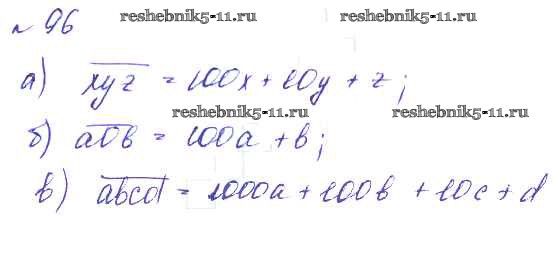 reshebnik5-11.ru
reshebnik5-11.ru
№ 96
а) x̅y̅z̅ = 100x + 10y + z;
reshebnik5-11.ru
reshebnik5-11.ru
б) a̅0̅b̅ = 100a + b;
в) a̅b̅c̅d̅ = 1000a + 100b + 10c + d